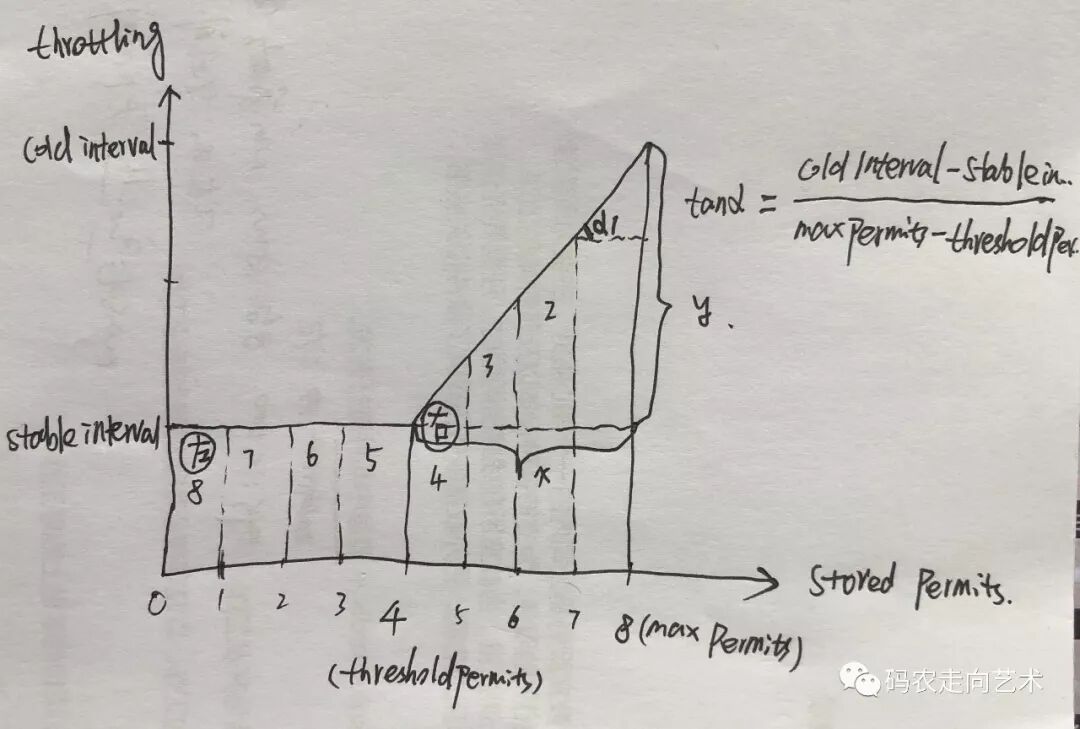 throttling
cold interval
stable interval
tanα = cold Interval - stable in..
max permits - threshold Per.
α 1
2
y.
3
左 7 6 5 右
8 4 x
0 1 2 3 4 5 6 7 8 (max Permits)
Stored Permits.
(threshold permits)
码农走向艺术